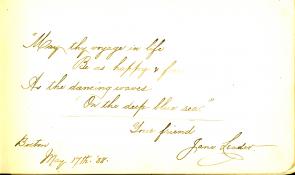 "May thy voyage in life
Be as happy & free
As the dancing waves
On the deep blue sea."
Your friend
Jane Leader.
Boston
May 17th. '88.